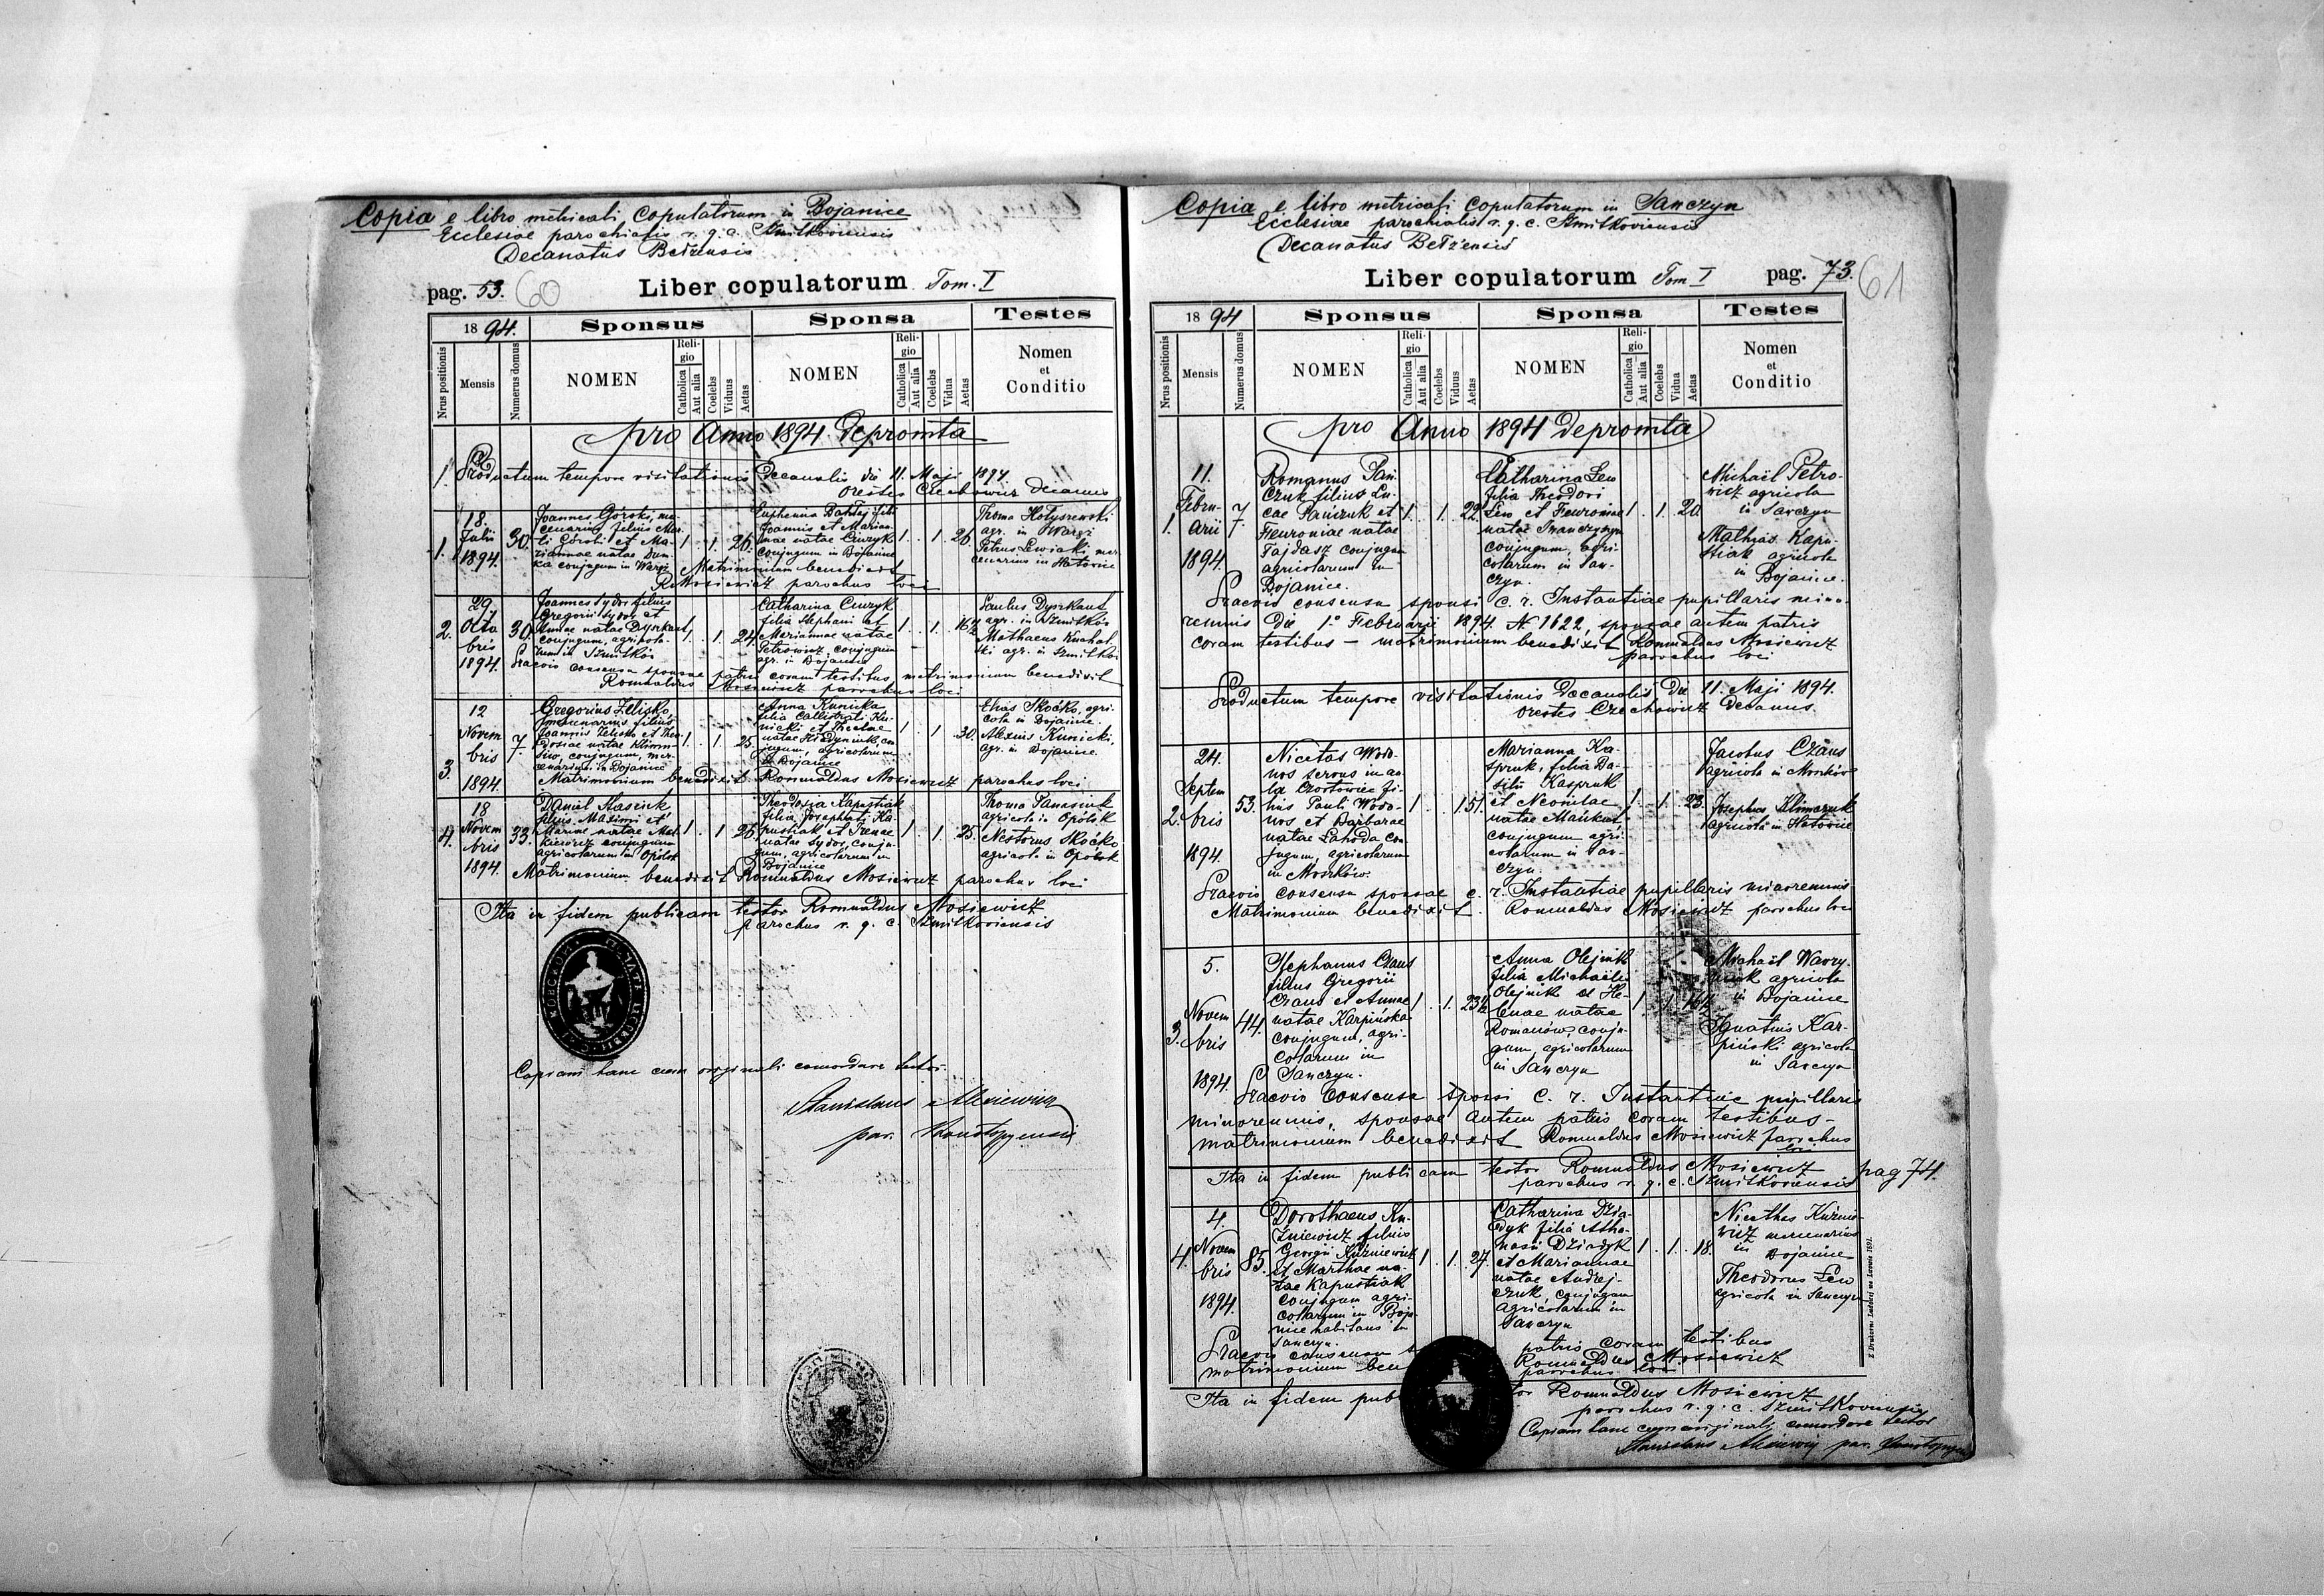 Copia e libro metricali copulatorum in Bojanice
Ecclesiae parochialis r. g. c. Szmitkoviensis
Decanatus Bełzensis
pag. 53. 60
Liber copulatorum Tom. I
18 94. Sponsus Sponsa Testes
Nrus positionis Mensis Numerus domus NOMEN Religio Catholica Aut alia Coelebs Viduus Aetas NOMEN Religio Catholica Aut alia Coelebs Vidua Aetas Nomen et Conditio
pro Anno 1894 depromta
1. Productum tempore visitationis Decanalis die 11. Maji 1894.
Orestes Czechowicz decanus
1. 18. Julii 1894. 30.
Joannes Górski, mer-
cenarius filius Mar-
ti Górski et Ma-
riannae natae Dum-
ka conjugum in Waręż
1. 1. 26.
filia
Joannis et Marian-
nae natae Czuryk
conjugum in Bojanice
1. 1. 26
Thoma Hołyszewski
agr. in Waręż
Petrus Lewicki mer-
cenarius in Hatowice
Matrimonium benedixit
R. Mosiewicz parochus loci
2. 29. Octobris 1894. 30.
Joannes Sydor filius
Gregorii Sydor et
Annae natae Dyszkant
conjugum, agricola-
rum in Szmitków
1. 1. 24.
Catharina Czuryk
filia Stephani et
Mariannae natae
Petrowicz, conjugum
agr. in Bojanice
1. 1. 16½
Paulus Dyszkant
agr. in Szmitków
Mathaeus
agr. in Szmitków
Praevio consensu sponsae patris coram testibus matrimonium benedixit
Romualdus Mosiewicz parochus loci
3. 12 Novembris 1894. 7
Gregorius Zelisko
mercenarius filius
Joannis Zelisko et Theo-
dosiae natae
conjugum, mer-
cenariorum in Bojanice
1. 1. 25.
Anna Kunicka
filia Callistrati Ku-
nicki et Theclae
natae
conjugum, agricolarum
in Bojanice
1. 1. 30.
Elias Skoćko, agri-
cola in Bojanice.
Alexius Kunicki,
agr. in Bojanice
Matrimonium benedixit Romualdus Mosiewicz parochus loci
4. 18 Novembris 1894. 33.
Daniel Stasiuk
filius Maximi et
Mariae natae Mat-
kiewicz conjugum
agricolarum in Opólsk
1. 1. 26.
Theodosia Kapustiak
filia Josephati Ka-
pustiak et Irenae
natae Sydor, conju-
gum, agricolarum in
Bojanice
1. 1. 25.
Thoma Panasiuk
agricola in Opólsk
Nestorus Skoćko
agricola in Opólsk
Matrimonium benedixit Romualdus Mosiewicz parochus loci
Ita in fidem publicam testor Romualdus Mosiewicz
parochus r. g. c. Szmitkoviensis
Copiam hanc cum originali concordare testor.
Stanislaus
par.
Copia e libro metricali copulatorum in Sanczyn
Ecclesiae parochialis r. g. c. Szmitkoviensis
Decanatus Bełzensis
Liber copulatorum Tom I pag. 73. 61
18 94 Sponsus Sponsa Testes
Nrus positionis Mensis Numerus domus NOMEN Religio Catholica Aut alia Coelebs Viduus Aetas NOMEN Religio Catholica Aut alia Coelebs Vidua Aetas Nomen et Conditio
pro Anno 1894 depromta
1. 11. Februarii 1894. 7
Romanus Pań-
czuk filius Lu-
cae Pańczuk et
Feuroniae natae
Tajdasz conjugum
agricolarum in
Bojanice.
1. 1. 22
Catharina Lew
filia Theodori
Lew et Feuroniae
natae Iwanczyszyn
conjugum, agri-
colarum in San-
czyn.
1. 1. 20.
Michaël Petro-
wicz agricola
in Sanczyn
Mathias Kapu-
stiak agricola
in Bojanice.
Praevio consensu sponsi c. r. Instantiae pupillaris mino-
rennis die 1º Februarii 1894. N 1622, sponsae autem patris
coram testibus – matrimonium benedixit Romualdus Mosiewicz
parochus loci
Productum tempore visitationis Decanalis die 11. Maji 1894.
Orestes Czechowicz decanus.
2. 24. Septembris 1894. 53.
Nicetas Wodo-
nos servus in au-
la Chortowiec fi-
lius Pauli Wodo-
nos et Barbarae
natae Lahoda con-
jugum, agricolarum
in Moszków.
1. 1. 51.
Marianna Ka-
spruk, filia Ba-
silii Kaspruk
et Neonilae
natae Mańkut,
conjugum agri-
colarum in San-
czyn.
1. 1. 23.
Jacobus Czaus
agricola in Moszków
Josephus Klimczuk
agricola in Hatowice
Praevio consensu sponsae c. r. Instantiae pupillaris minorennis
Matrimonium benedixit. Romualdus Mosiewicz parochus loci
3. 5. Novembris 1894. 44.
Stephanus Czaus
filius Gregorii
Czaus et Annae
natae Karpińska
conjugum, agri-
colarum in
Sanczyn.
1. 1. 23½
Anna Olejnik
filia Michaëlis
Olejnik et He-
lenae natae
Romanów, conju-
gum, agricolarum
in Sanczyn
1. 1.
Michaël Wawry-
agricola
in Bojanice
Ignatius Kar-
piński agricola
in Sanczyn
Praevio Consensu sponsi C. r. Instantiae pupillaris
minorennis, sponsae autem patris coram testibus –
matrimonium benedixit Romualdus Mosiewicz parochus
loci
Ita in fidem publicam testor Romualdus Mosiewicz
parochus r. g. c. Szmitkoviensis
pag 74.
4. 4. Novembris 1894. 85.
Dorothaeus Ku-
źniewicz filius
Georgii Kuźniewicz
et Marthae na-
tae Kapustiak
conjugum agri-
colarum in Boja-
nice habitans in
Sanczyn.
1. 1. 27.
Catharina Dzia-
dyk filia Atha-
nasii Dziadyk
et Mariannae
natae Andrej-
czuk, conjugum
agricolarum in
Sanczyn
1. 1. 18.
Nicethas Kuźnie-
wicz mercenarius
in Bojanice
Theodorus Lew
agricola in Sanczyn
Praevio consensu patris coram testibus
matrimonium ben Romualdus Mosiewicz
parochus loci
Ita in fidem pub tor Romualdus Mosiewicz
parochus r. g. c. Szmitkoviensis
Copiam hanc cum originali concordare testor
Stanislaus par.
Z Drukarni Ludowej we Lwowie 1891.